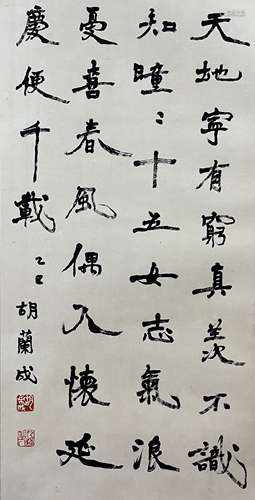 天地寧有窮真羨不識
知瞳〻十五女志氣浪
憂喜春風偶入懷延
慶便千載
乙巳 胡蘭成